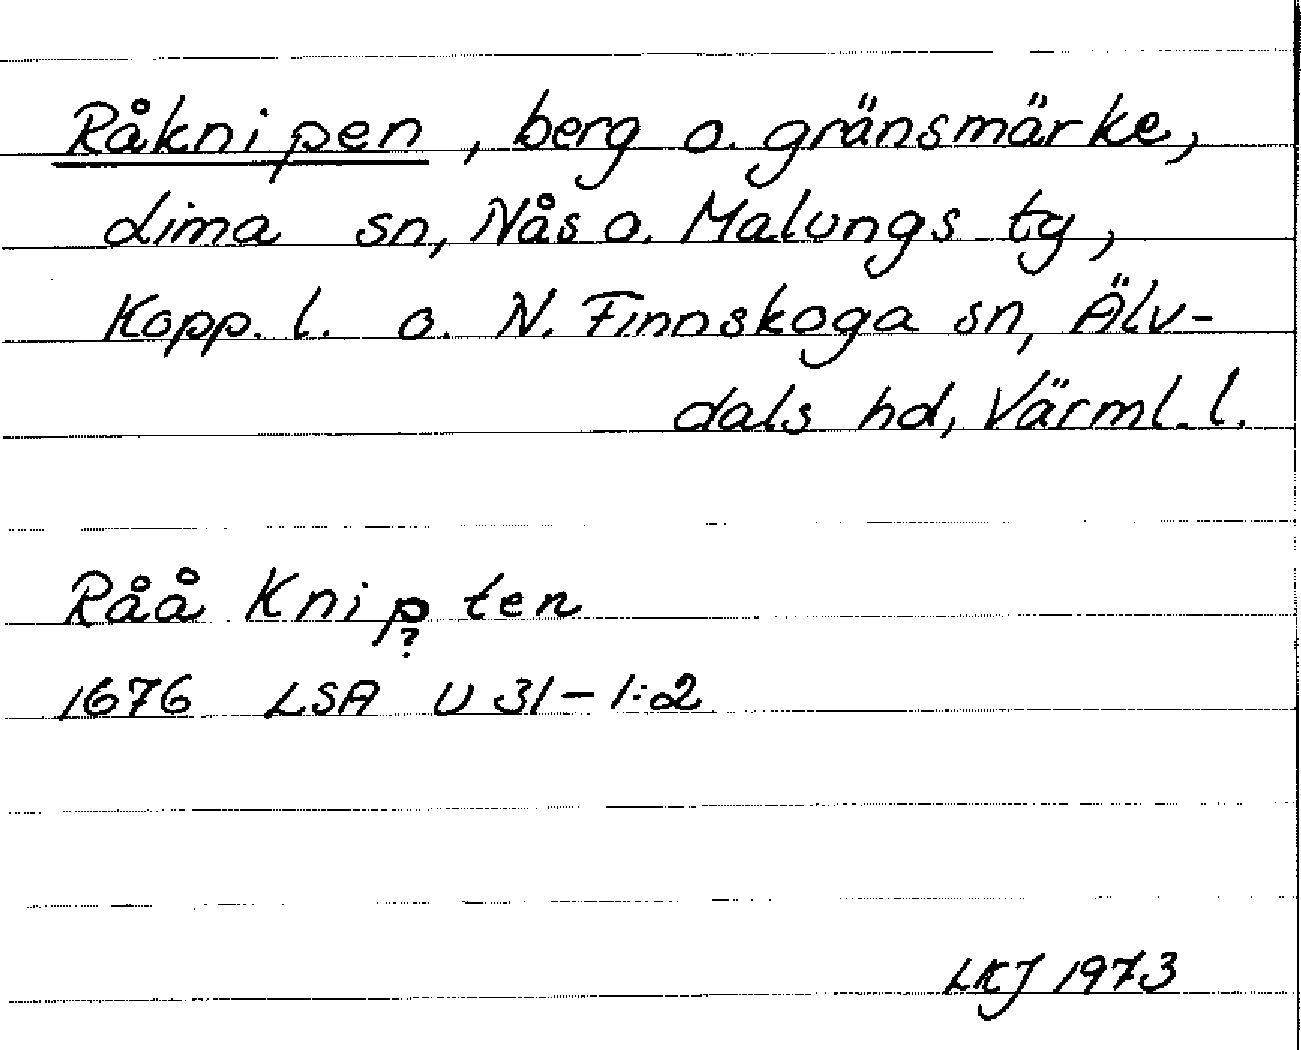 Råknipen, berg o. gränsmärke,
Lima sn, Nås o. Malungs tg,
Kopp. l. o. N. Finnskoga sn, Älv-
dals hd, Värml. l.
Råå Knipten
?
1676 LSA U 31-1:2
LKJ 1973